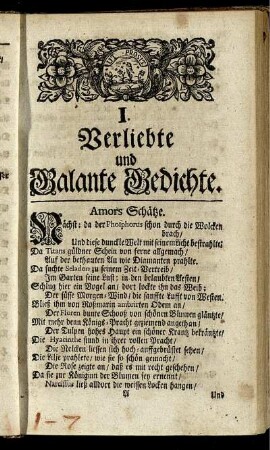 I.
Verliebte
und
Galante Gedichte.
Amors Schätze.
NÄchst: da der Phosphorus schon durch die Wolcken
brach/
Und diese dunckle Welt mit seinem Licht bestrahlte:
Da Titans güldner Schein von ferne allgemach/
Auf der bethränten Au wie Diamanten prahlte.
Da suchte Seladon zu seinem Zeit-Vertreib/
Im Garten seine Lust in den belaubten Aesten/
Schlug hier ein Vogel an/ dort lockte ihn das Weib:
Der süsse Morgen-Wind/ die sanffte Lufft von Westen.
Bließ ihm von Roßmarin ambrirten Odem an/
Der Floren bunte Schooß von schönen Blumen gläntzte/
Mit mehr denn Königs-Pracht geziemend angethan/
Der Tulpen hohes Haupt ein schöner Krantz bekräntzte/
Die Hyacinthe stund in ihrer vollen Pracht/
Die Nelcken liessen sich hoch-auffgebrüstet sehen/
Die Lilje prahlete/ wie sie so schön gemacht/
Die Rose zeigte an/ daß es mit recht geschehen/
Da sie zur Königinn der Blumen sey ernennt/
Narcissus ließ alldort die weissen Locken hangen/
Und
1-7